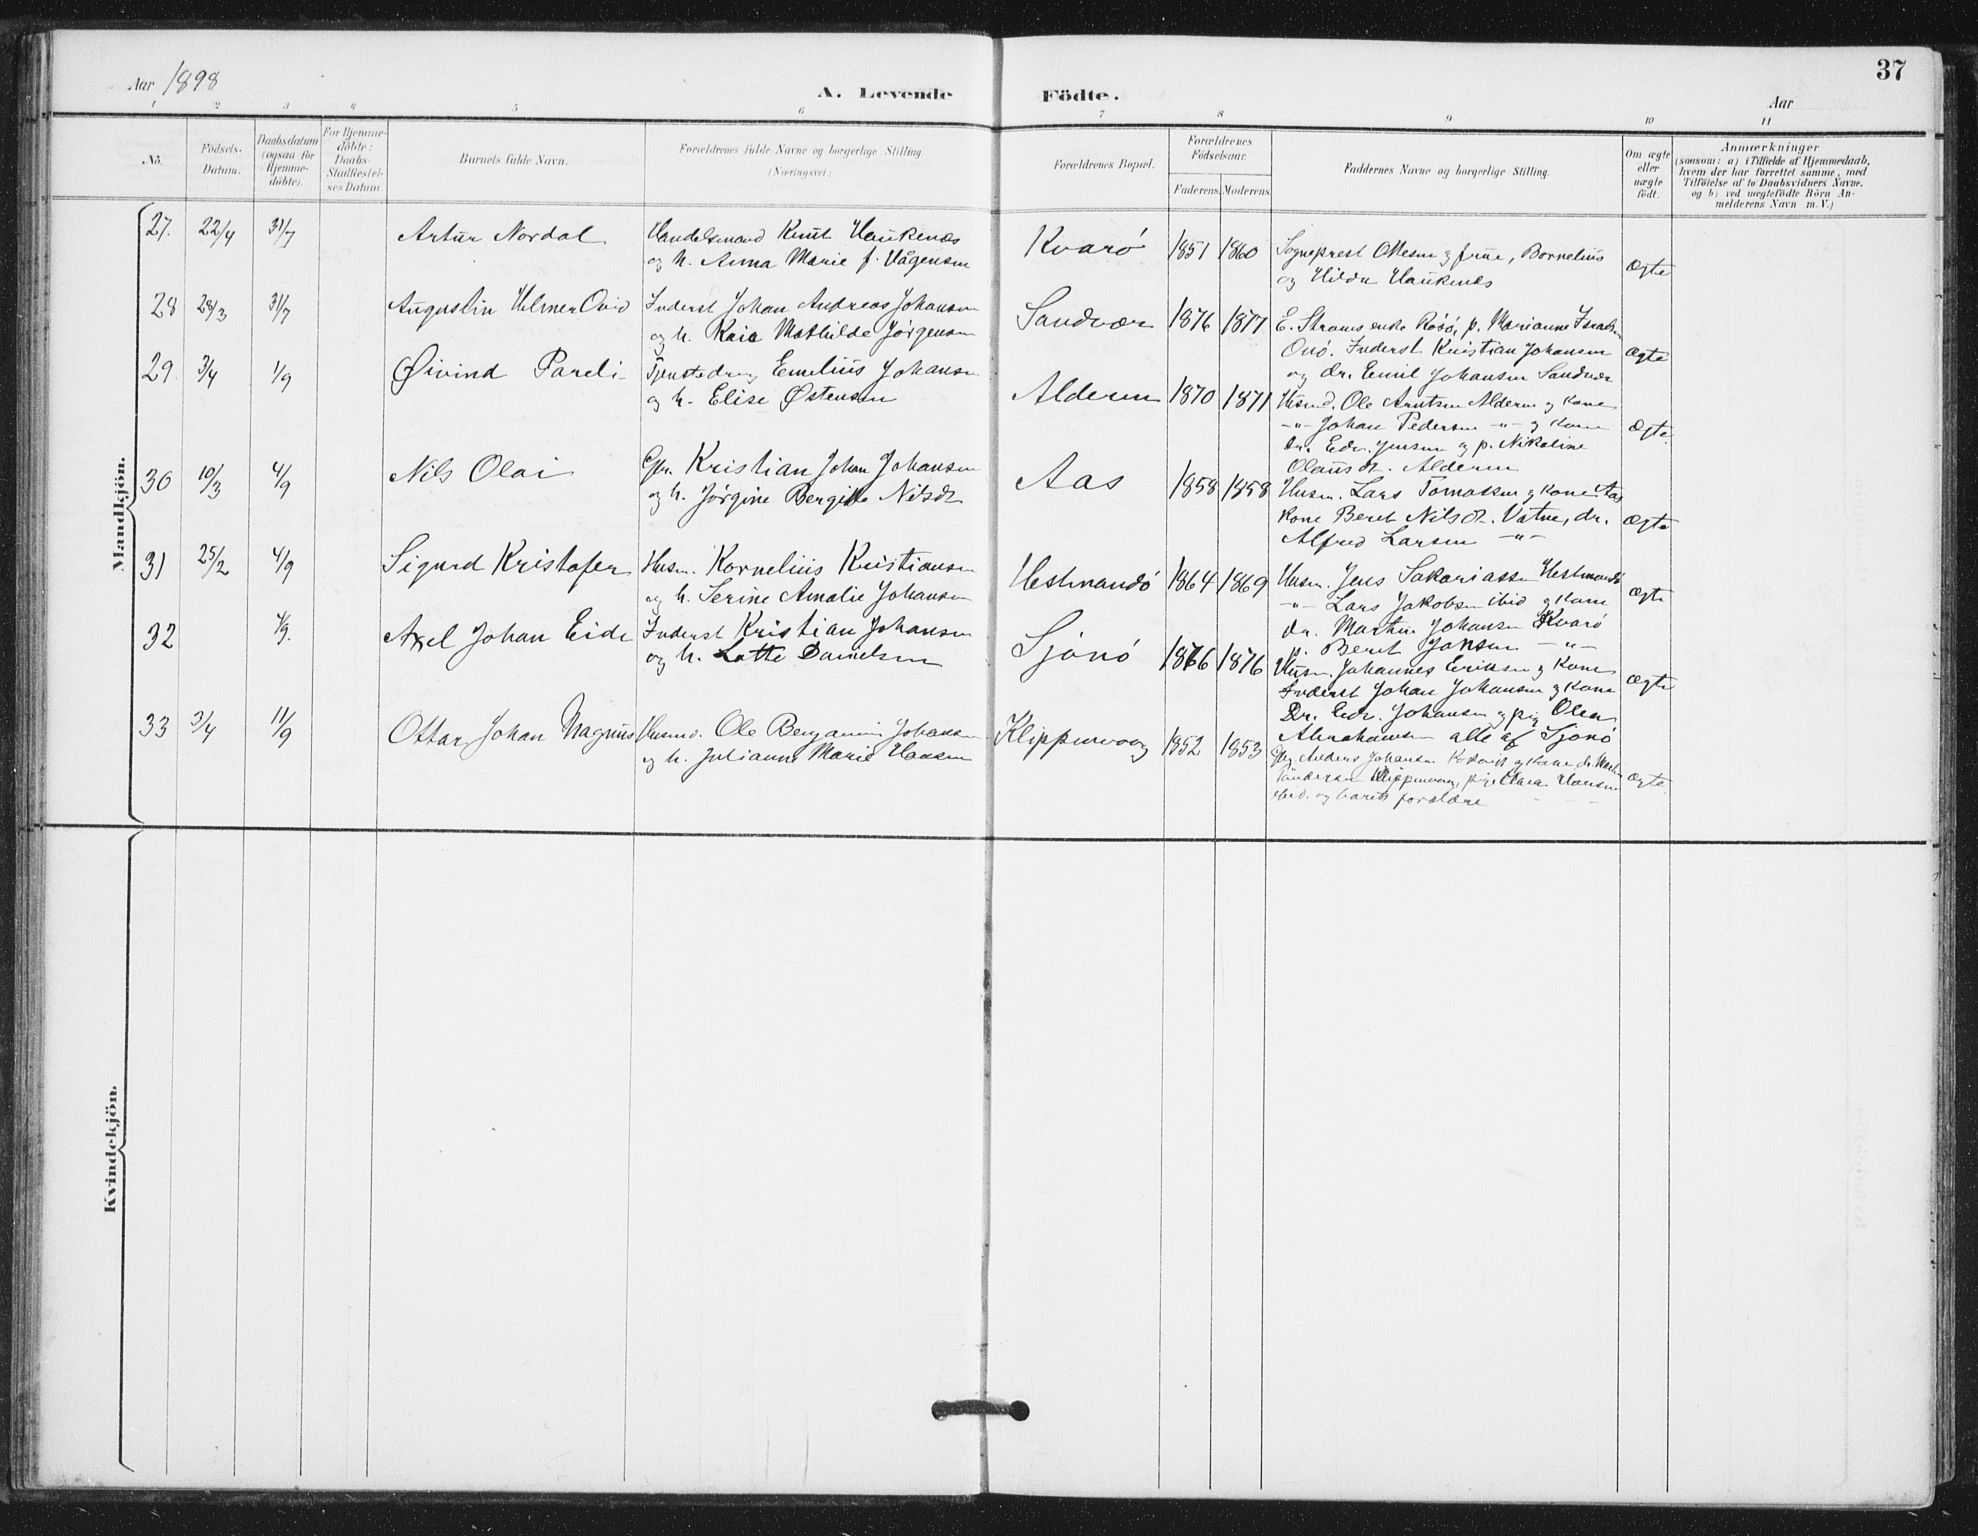 Aar 1898
A. Levende Födte.
37
Aar
1 2 3 4 5 6 7 8 9 10 11
No.
Födsels-Datum.
Daabsdatum (ogsaa for Hjemme-döbte).
For Hjemme-döbte: Daabs-Stadfæstel-ses Datum
Barnets fulde Navn.
Forældrenes fulde Navne og borgerlige Stilling (Næringsvei.)
Forældrenes Bopæl.
Forældrenes Födselsaar.
Faderens. Moderens.
Faddernes Navne og borgerlige Stilling.
Om ægte eller uægte födt.
Anmærkninger
(saasom: a) i Tilfælde af Hjemmedaab,
hvem der har forrettet samme, med
Tilföielse af to Daabsvidners Navne.
og b) ved uægtefödte Börn An-
melderens Navn m. V.)
Mandkjön.
27. 22/4 31/7 Artur Nordal
Handelsmand Knut Haukenæs
og h. Anna Marie f. Vågensen
Kvarö 1851 1860
Sogneprest Ottesen og frue, Bornelius
og Hilda Haukenæs
Ægte
28 28/3 31/7 Augustin Helmer Ovid
Inderst Johan Andreas Johansen
og h. Kaia Mathilde Jørgensen
Sandvær 1876 1877
E. Stroms enke Rösö, p. Marianne Israels
Onö. Inderst Kristian Johansen
og dr. Emil Johansen Sandvær
Ægte
29. 3/4 1/9 Øivind Pareli
Tjenstedreng Emelius Johansen
og h. Elise Østensen
Alderen 1870 1871
Husmd. Ole Arntsen Alderen og Kone
-"- Johan Pedersen -"- og Kone
dr. Edv. Jensen og p. Nikoline
Olausdt. Alderen
Ægte
30 10/3 4/9 Nils Olai
Gbr. Kristian Johan Johansen
og h. Jørgine Bergitte Nilsdt
Aas 1858 1858
Husm. Lars Tomassen og Kone Aas
Kone Beret Nilsdt. Vatne, dr.
Alfred Larsen -"-
Ægte
31 25/2 4/9 Sigurd Kristofer
Husm. Kornelius Kristiansen
og h. Serine Amalie Johansen
Hestmandö 1864 1869
Husm. Jens Sakariassen Hestmandö
-"- Lars Jakobsen ibid og Kone
dr. Martin Johansen Kvarö
p. Beret Jonsen -"-
Ægte
32 4/9. Axel Johan Eide
Inderst Kristian Johansen
og h. Lotte Danielsen
Sjonö 1876 1876
Husm. Johannes Eriksen og Kone
Inderst Johan Johansen og Kone
Dr. Edv. Johansen og pig Olea
Abrahamsen alle af Sjonö
Ægte
33 3/4 11/9 Ottar Johan Magnus
Husmd. Ole Benjamin Johansen
og h. Julianna Marie Hansen
Klippenvaag 1852 1853
Gbr. Anders Johansen og Kone dr. Martin
Andersen Klippenvaag, pige Hansen
ibid. og barnets forældre
Ægte
Kvindekjön.